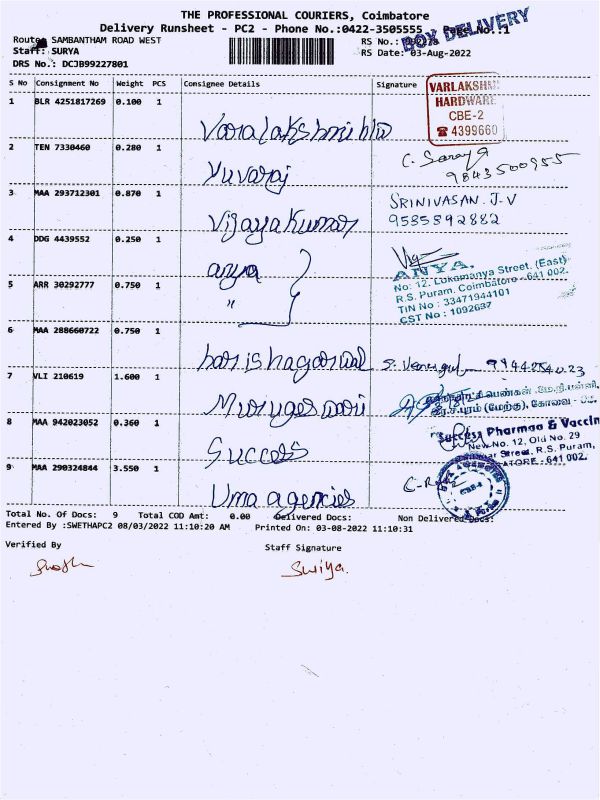 THE PROFESSIONAL COURIERS, Coimbatore
Delivery Runsheet - PC2 - Phone No.:0422-3505555 No.:1
BOX DELIVERY
Route: SAMBANTHAM ROAD WEST RS No.:
Staff: SURYA RS Date: 03-Aug-2022
DRS No.: DCJB99227801
S No Consignment No Weight PCS Consignee Details Signature
1 BLR 4251817269 0.100 1
VARLAKSHMI
HARDWARE
CBE-2
☎ 4399660
Varalakshmi h/w
2 TEN 7330460 0.280 1
C. Saraya
9843500955
Yuvaraj
3 MAA 293712301 0.870 1 SRINIVASAN.J.V
9535392882
Vijaya Kumar
4 DDG 4439552 0.250 1
anya
ANYA.
No: 12, Lokamanya Street, (East)
R.S. Puram, Coimbatore - 641 002.
TIN No : 33471944101
CST No : 1092637
5 ARR 30292777 0.750 1
"
6 MAA 288660722 0.750 1
harishagarwal S. Venugul 9944254023
7 VLI 210619 1.600 1
Murugeswari
பெண்கள் மே.நி.பள்ளி,
ஆர்.எஸ்.புரம் (மேற்கு), கோவை -
8 MAA 942023052 0.360 1
Success
Success Pharmaa & Vaccin
New No. 12, Old No. 29
Street, R.S. Puram,
COIMBATORE - 641 002.
9 MAA 290324844 3.550 1
Uma agencies
UMA AGENCIES
CBE-2
Total No. Of Docs: 9 Total COD Amt: 0.00 Delivered Docs: Non Delivered Docs:
Entered By :SWETHAPC2 08/03/2022 11:10:20 AM Printed On: 03-08-2022 11:10:31
Verified By Staff Signature
Suriya.